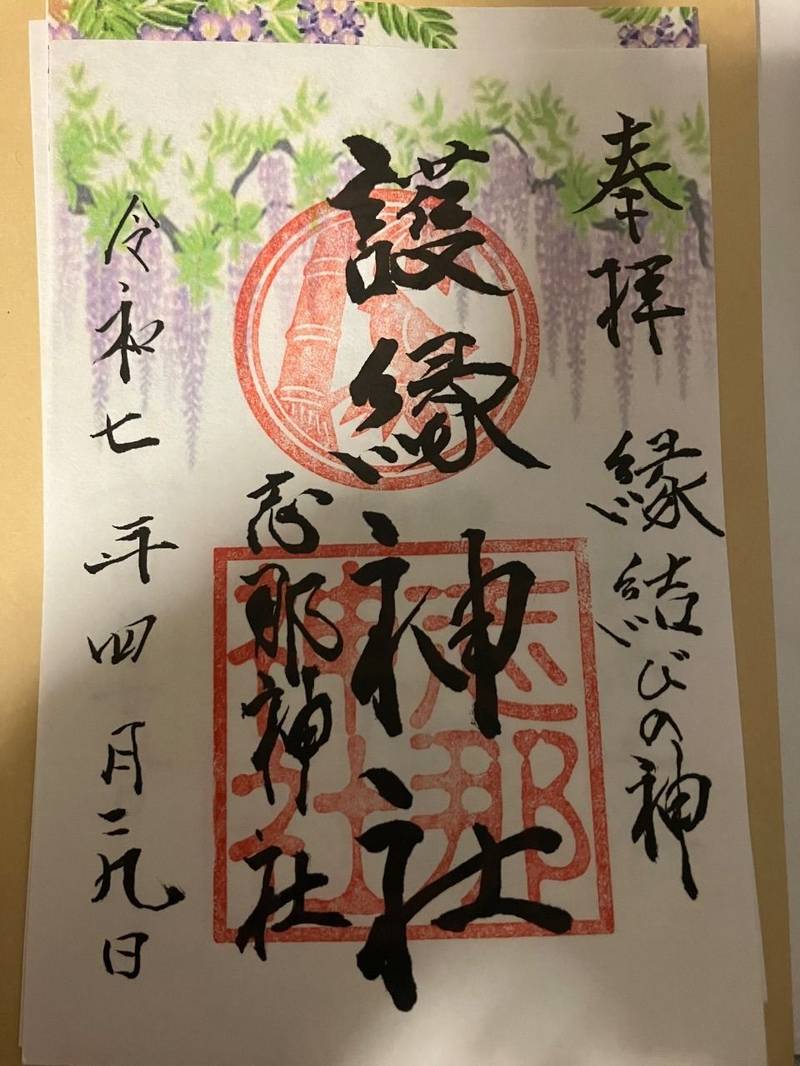 奉拝 縁結びの神
護縁神社
志那神社
令和七年四月二九日
志那神社